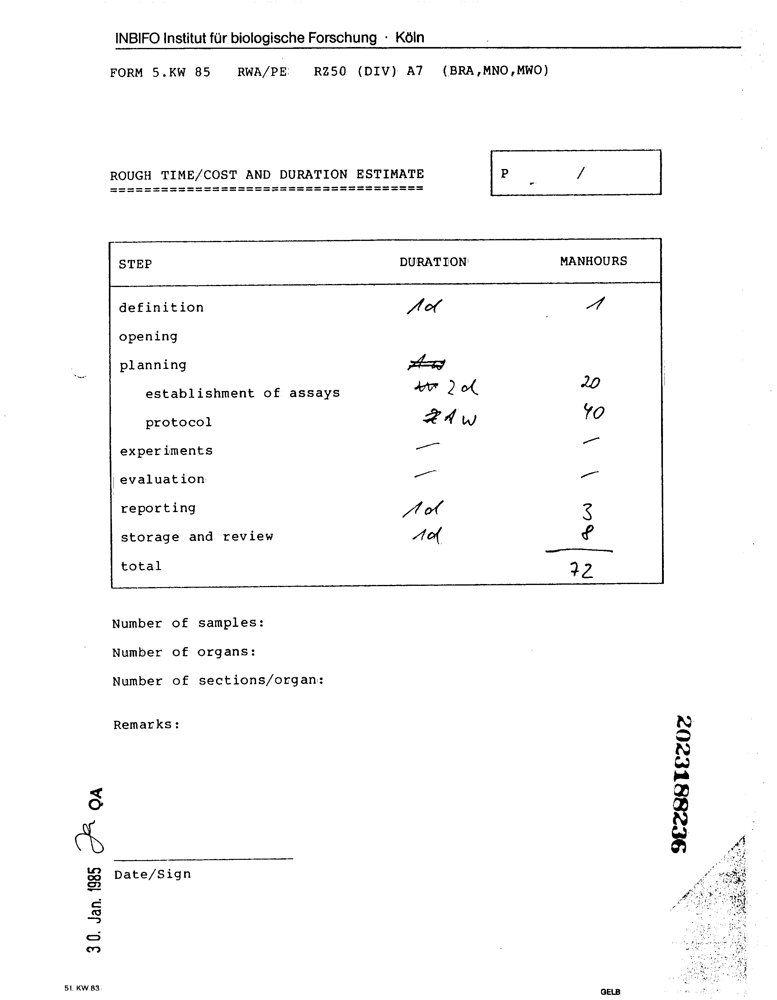 INBIFO Institut für biologische Forschung · Köln
FORM 5.KW 85 RWA/PE RZ50 (DIV) A7 (BRA,MNO,MWO)
ROUGH TIME/COST AND DURATION ESTIMATE
=====================================
P /
STEP DURATION MANHOURS
definition 1d 1
opening
planning
establishment of assays 2d 20
protocol 1w 40
experiments — —
evaluation — —
reporting 1d 3
storage and review 1d 8
total 72
Number of samples:
Number of organs:
Number of sections/organ:
Remarks:
Date/Sign
30. Jan. 1985 QA
2023188236
51. KW 83
GELB